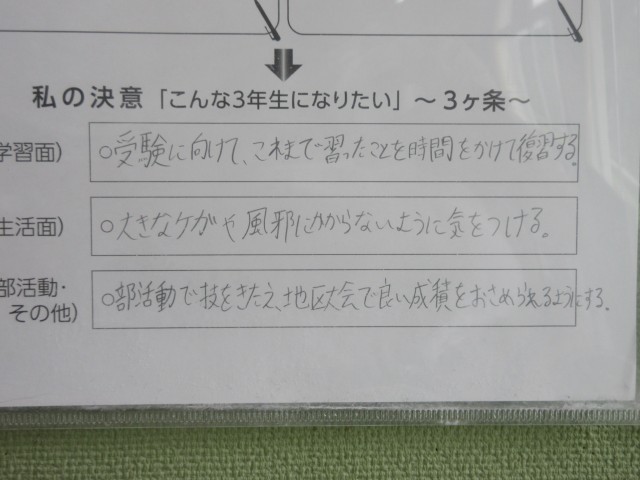 私の決意「こんな3年生になりたい」～3ヶ条～
学習面)
○受験に向けて、これまで習ったことを時間をかけて復習する。
生活面)
○大きなケガや風邪にかからないように気をつける。
部活動・
その他)
○部活動で技をきたえ、地区大会で良い成積をおさめられるようにする。